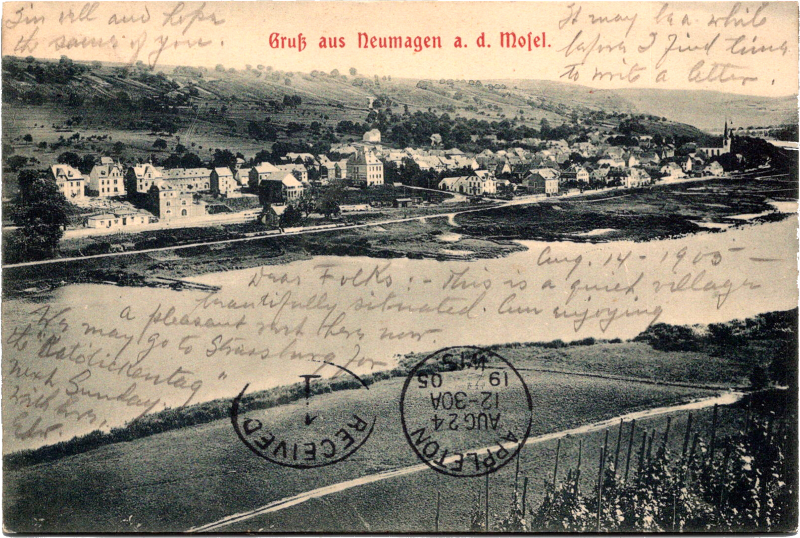 I'm well and hope
the same of you.
Gruß aus Neumagen a. d. Mosel.
It may be a while
before I find time
to write a letter.
Aug. 14 - 1905 -
Dear Folks: - This is a quiet village
beautifully situated. Am enjoying
a pleasant visit here now
We may go to Strassburg for
the "Katolickentag"
next Sunday.
With love,
RECEIVED
1
APPLETON
AUG 24
12-30A
19 05
WIS.